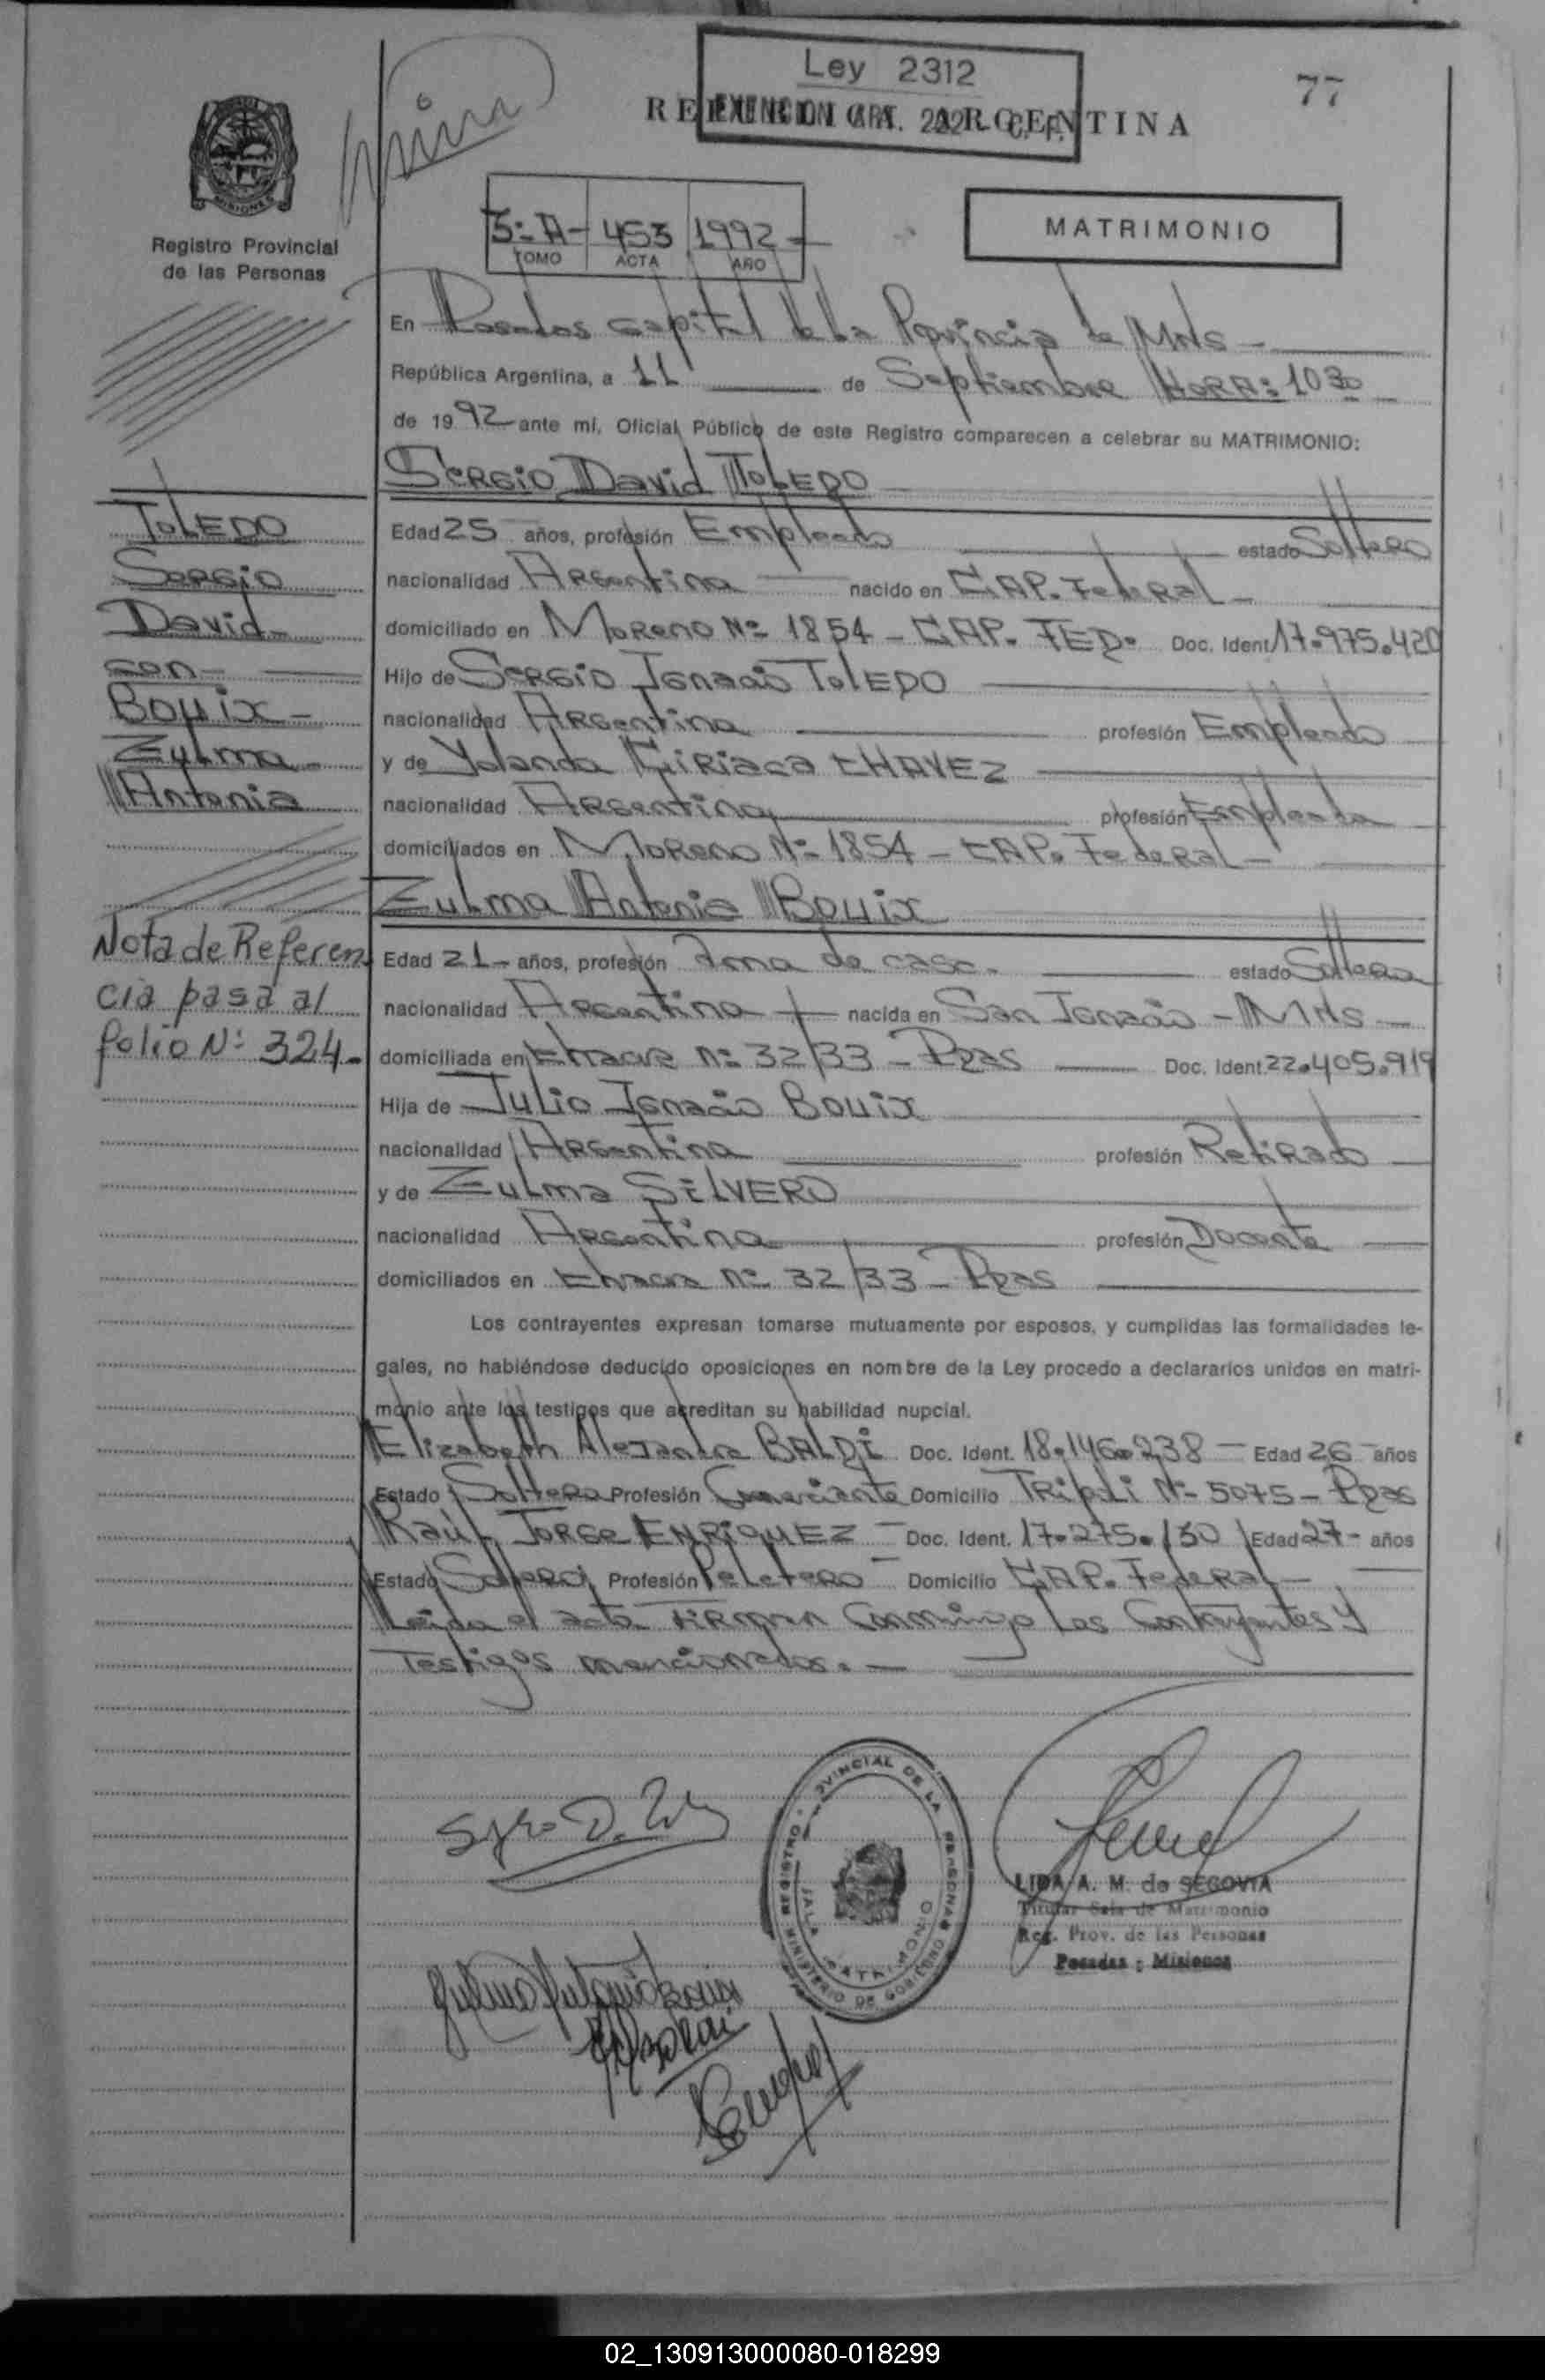 Ley 2312
EXENCION ART. 292 - C. F.
REPUBLICA ARGENTINA
77
MISIONES
Registro Provincial
de las Personas
5:-A- 453 1992-
TOMO ACTA AÑO
MATRIMONIO
En Posadas capital de la Provincia de Mnes -
República Argentina, a 11 de Septiembre HORA: 10 30
de 1992 ante mí, Oficial Público de este Registro comparecen a celebrar su MATRIMONIO:
SERGIO David TOLEDO
Edad 25 años, profesión Empleado estado Soltero
nacionalidad Argentina nacido en CAP. Federal -
domiciliado en Moreno Nº 1854 - CAP. FED. Doc. Ident 17.975.420
Hijo de Sergio Ignacio TOLEDO
nacionalidad Argentina profesión Empleado
y de Yolanda Ciriaca CHAVEZ
nacionalidad Argentina profesión Empleada
domiciliados en Moreno Nº 1854 - CAP. Federal -
Zulma Antonia Bouix
Edad 21 - años, profesión Ama de casa. estado Soltera
nacionalidad Argentina nacida en San Ignacio - Mnes -
domiciliada en Chacra nº 32/33 - Pdas Doc. Ident. 22.405.919
Hija de Julio Ignacio Bouix
nacionalidad Argentina profesión Retirado
y de Zulma SILVERO
nacionalidad Argentina profesión Docente
domiciliados en Chacra nº 32/33 - Pdas
Los contrayentes expresan tomarse mutuamente por esposos, y cumplidas las formalidades le-
gales, no habiéndose deducido oposiciones en nombre de la Ley procedo a declararlos unidos en matri-
monio ante los testigos que acreditan su habilidad nupcial.
Elizabeth Alejandra BALDI Doc. Ident. 18.146.238 - Edad 26 - años
Estado Soltera Profesión Comerciante Domicilio Tripoli Nº 5075 - Pdas
Raúl Jorge ENRIQUEZ - Doc. Ident. 17.275.130 Edad 27 - años
Estado Soltero Profesión Peletero - Domicilio CAP. Federal -
Leida el acta Firman Conmigo Los Contrayentes y
Testigos mencionados. -
TOLEDO
Sergio
David -
con -
Bouix -
Zulma -
Antonia
Nota de Referen
cia pasa al
folio Nº 324.
REGISTRO PROVINCIAL DE LA PERSONA
SALA MATRIMONIO
MINISTERIO DE GOBIERNO
LIDA A. M. de SEGOVIA
Titular Sala de Matrimonio
Reg. Prov. de las Personas
Posadas : Misiones
Zulma Antonia Bouix
02_130913000080-018299